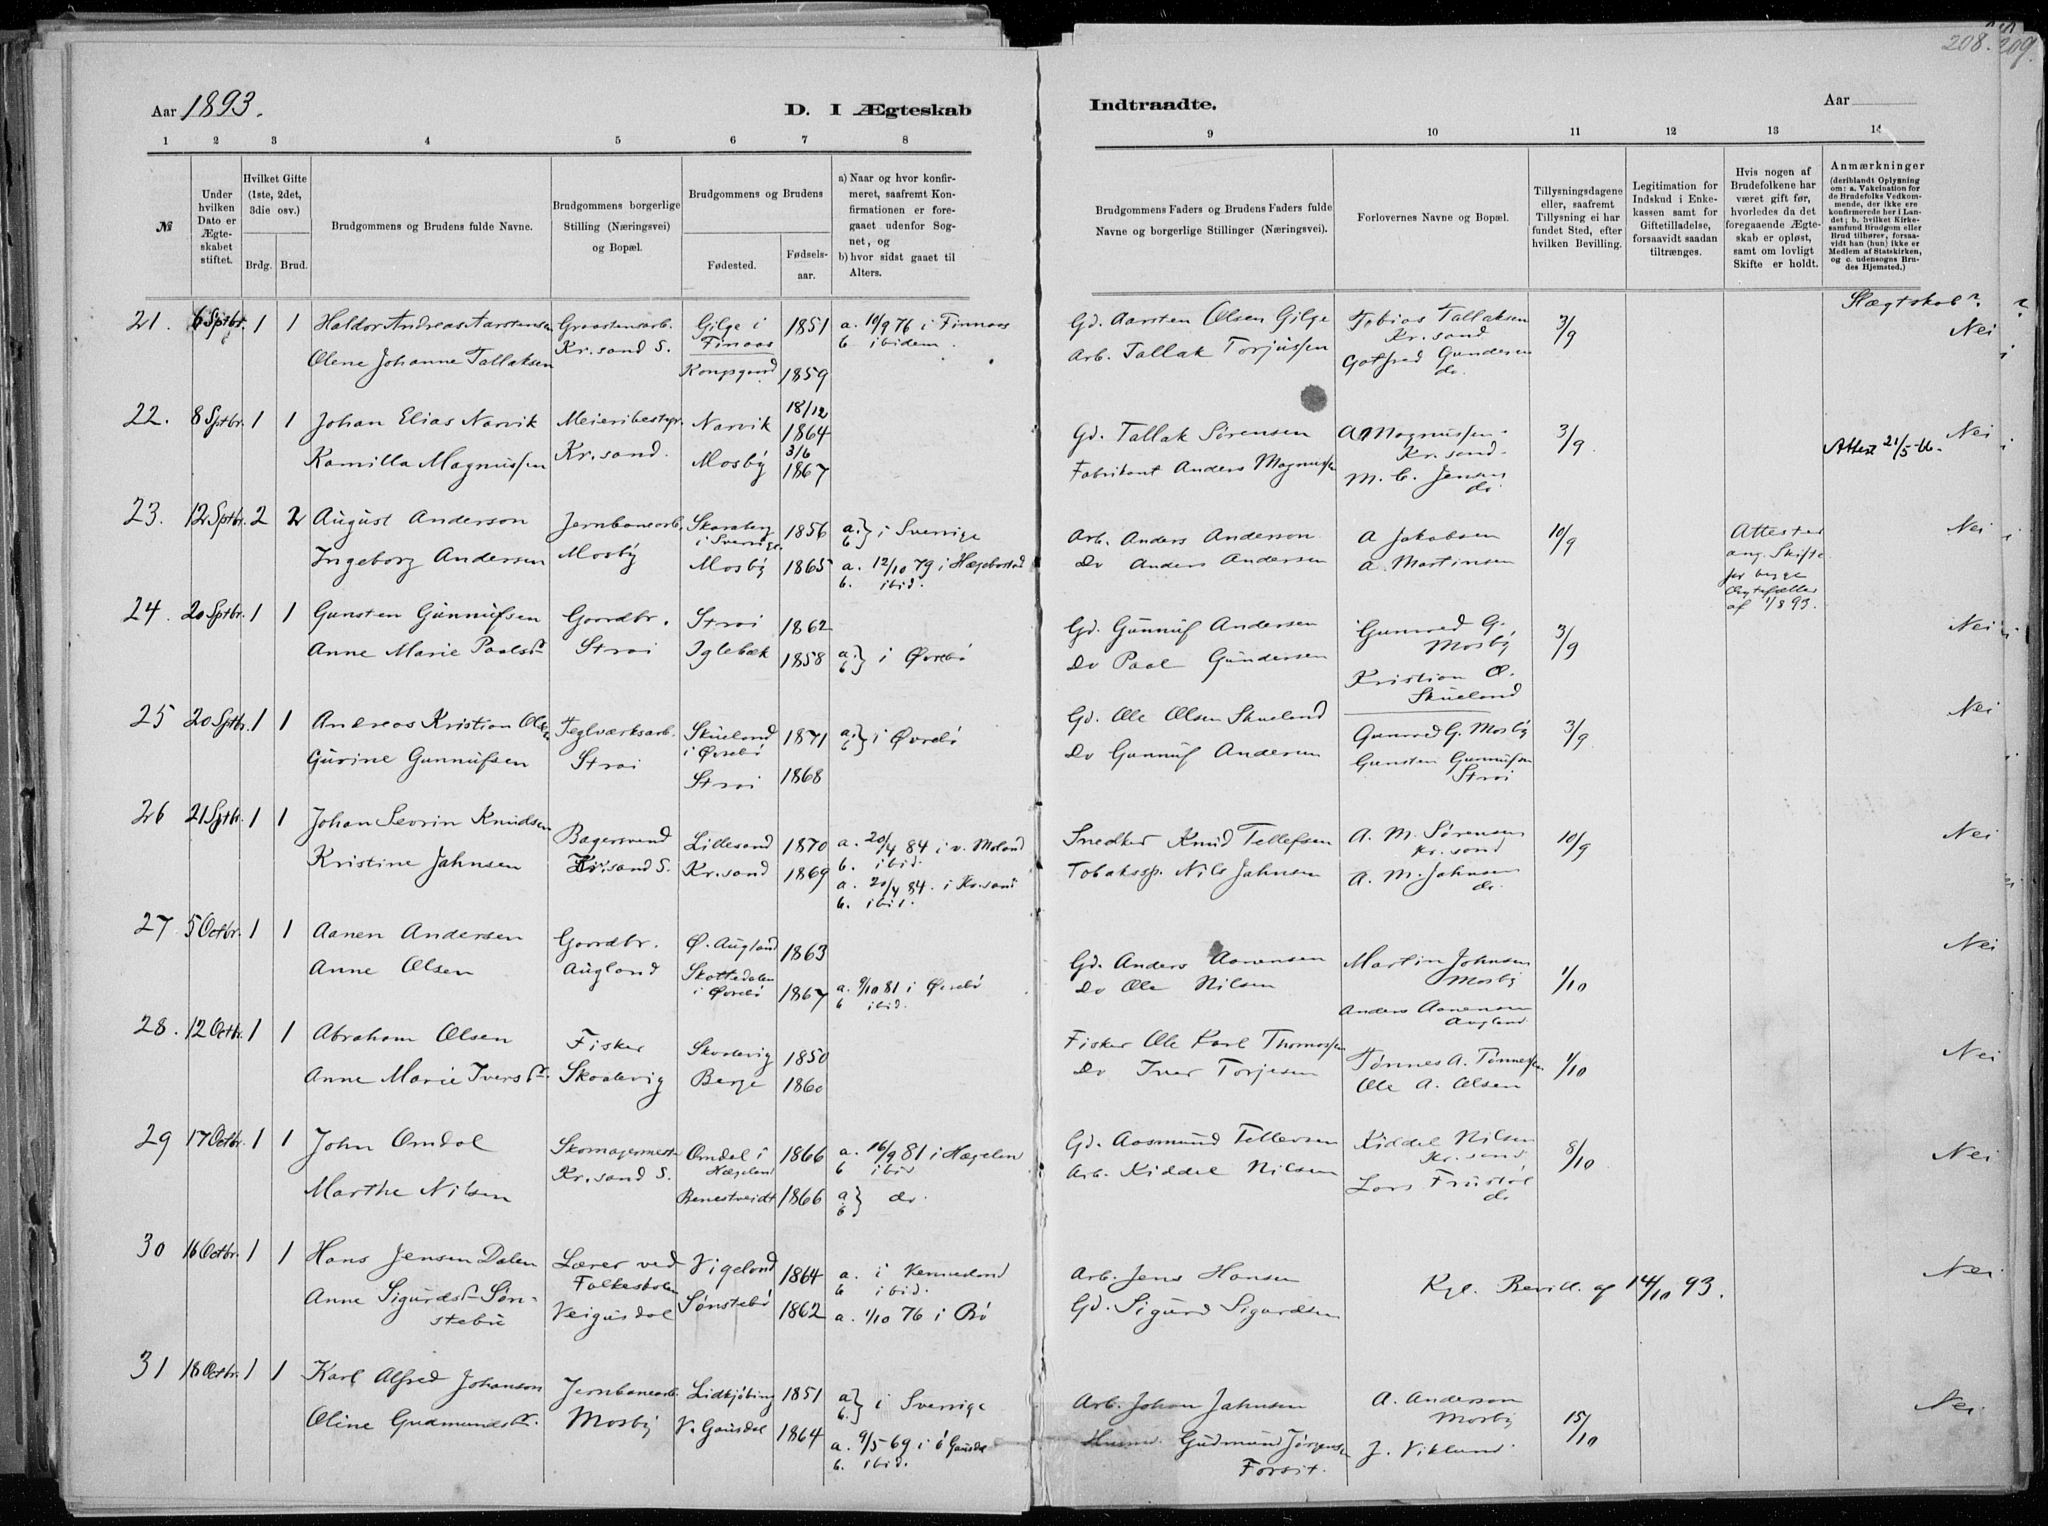 208. 209.
Aar 1893. D. I Ægteskab Indtraadte. Aar
1 2 3 4 5 6 7 8 9 10 11 12 13 14
№
Under hvilken Dato er Ægteskabet stiftet.
Hvilket Gifte (1ste, 2det, 3die osv.)
Brdg. Brud.
Brudgommens og Brudens fulde Navne.
Brudgommens borgerlige Stilling (Næringsvei) og Bopæl.
Brudgommens og Brudens
Fødested. Fødselsaar.
a) Naar og hvor konfirmeret, saafremt Konfirmationen er foregaaet udenfor Sognet, og
b) hvor sidst gaaet til Alters.
Brudgommens Faders og Brudens Faders fulde Navne og borgerlige Stillinger (Næringsvei).
Forlovernes Navne og Bopæl.
Tillysningsdagene eller, saafremt Tillysning ei har fundet Sted, efter hvilken Bevilling.
Legitimation for Indskud i Enkekassen samt for Giftetilladelse, forsaavidt saadan tiltrænges.
Hvis nogen af Brudefolkene har været gift før, hvorledes da det foregaaende Ægteskab er opløst, samt om lovligt Skifte er holdt.
Anmærkninger
(deriblandt Oplysning om: a. Vakcination for de Brudefolks Vedkommende, der ikke ere konfirmerede her i Landet; b. hvilket Kirkesamfund Brudgom eller Brud tilhører, forsaavidt han (hun) ikke er Medlem af Statskirken, og c. udensogns Brudes Hjemsted.)
Slægtskab?
21. 6 Sptbr. 1 1 Haldor Andreas Aarstensen Graastensarb. Gilge i 1851 a. 10/9 76 i Finnaas Gd. Aarsten Olsen Gilge Tobias Tallaksen 3/9 Nei
Kr.sand S. Finaas b. ibidem. Kr.sand
Olene Johanne Tallaksen Kongsgaard 1859 Arb. Tallak Torjussen Gotfred Gundersen
do.
22. 8 Sptbr. 1 1 Johan Elias Narvik Meieribestyr. Narvik 18/12 1864 Gd. Tallak Sørensen A Magnussen 3/9 Nei
Kr.sand. Kr.sand. Attest 21/5-16.
Kamilla Magnussen Mosby 3/6 1867 Fabrikant Anders Magnussen M. C. Jensen
do
23. 12 Sptbr. 2 2 August Anderson Jernbanearb. Skaraborg i Sverrige 1856 a. b. } i Sverrige Arb. Anders Anderson A Jakobsen 10/9 Attester Nei
Ingeborg Andersen Mosby Mosby 1865 a. 12/10 79 i Hægebostad Do Anders Andersen A. Martinsen ang. Skifte
b. ibid. for begge
Ægtefæller
af 1/8 93.
24. 20 Sptbr. 1 1 Gunsten Gunnufsen Gaardbr. Strai 1862 Gd. Gunnuf Andersen Gunvald G. Mosby 3/9 Nei
Anne Marie Paalsdr Strai Iglebæk 1858 a. b. } i Øvrebø Do Paal Gundersen Kristian O.
Skueland
25 20 Sptbr. 1 1 Andreas Kristian Olsen Teglværksarb. Skueland i Øvrebø 1871 a. b. } i Øvrebø Gd. Ole Olsen Skueland Gunvald G. Mosby 3/9 Nei
Gurine Gunnufsen Strai Strai 1868 Do Gunnuf Andersen Gunsten Gunnufsen
Strai
26 21 Sptbr. 1 1 Johan Severin Knudsen Bagersvend Lillesand 1870 a. 20/4 84 i v. Moland Snedker Knud Tellefsen A. M. Sørensen 10/9 Nei
b. ibid. Kr.sand
Kristine Jahnsen Kr.sand S. Kr.sand 1869 a. 20/4 84. i Kr.sand Tobakssp. Nils Jahnsen A. M. Jahnsen
b. ibid. do.
27 5 Octbr. 1 1 Aanen Andersen Gaardbr. Ø. Augland 1863 Gd. Anders Aanensen Martin Johnsen 1/10 Nei
Mosby
Anne Olsen Augland Skottedalen i Øvrebø 1867 a. 9/10 81 i Øvrebø Do Ole Nilsen Anders Aanensen
b ibid. Augland
28. 12 Octbr. 1 1 Abraham Olsen Fisker Skaalevig 1850 Fisker Ole Karl Thomassen Tønnes A. Tønnessen 1/10 Nei
Anne Marie Iversdr. Skaalevig Berge 1860 Do Iver Torjesen Ole A. Olsen
29 17 Octbr. 1 1 John Omdal Skomagermest. Omdal i 1866 a. 16/9 81 i Hægeland Gd. Aasmund Tellevsen Kiddel Nilsen 8/10 Nei
Kr.sand S. Hægeland b ibid Kr.sand
Marthe Nilsen Benestveidt 1866 a b } do. Arb. Kiddel Nilsen Lars Frustøl
do
30 16 Octbr. 1 1 Hans Jensen Dalen Lærer ved Vigeland 1864 a. i Vennesland Arb. Jens Hansen Kgl. Bevill. af 14/10 93. Nei
Folkeskolen b ibid.
Anne Sigurdsdr Søn- Veigusdal Sønstebø 1862 a. 1/10 76 i Bø Gd. Sigurd Sigurdsen
stebø
31 18 Octbr. 1 1 Karl Alfred Johanson Jernbanearb. Lidkjøbing 1851 a b. } i Sverrige Arb. Johan Jahnsen A. Anderson 15/10 Nei
Mosby
Oline Gudmundsdr. Mosby V. Gausdal 1864 a. 9/5 69 i ø Gausdal Husmd. Gudmund Jørgensen J. Viklund
b. ibid. Forsit.